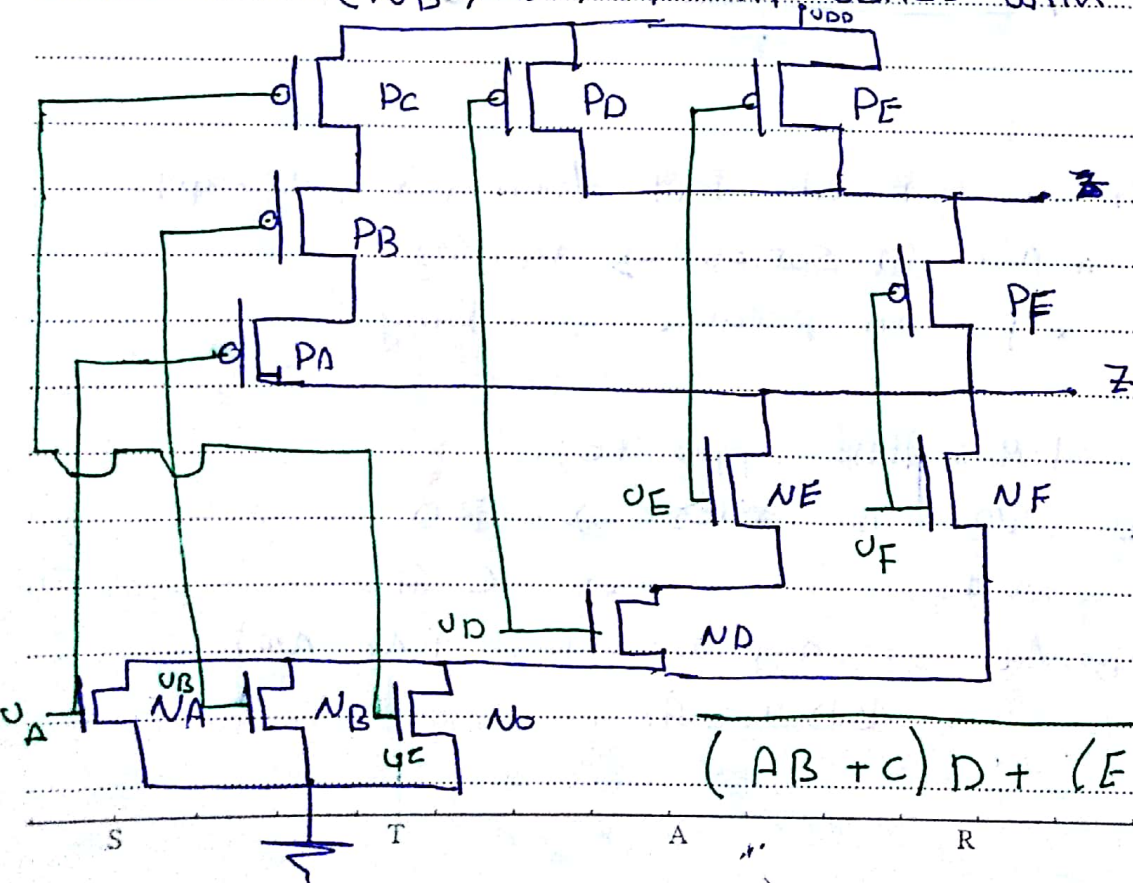 VDD
PC PD PE
PB
PF
PA
Z
UE NE NF
UF
UD ND
UB
UA NA NB
(AB + C) D + (E
S T A R